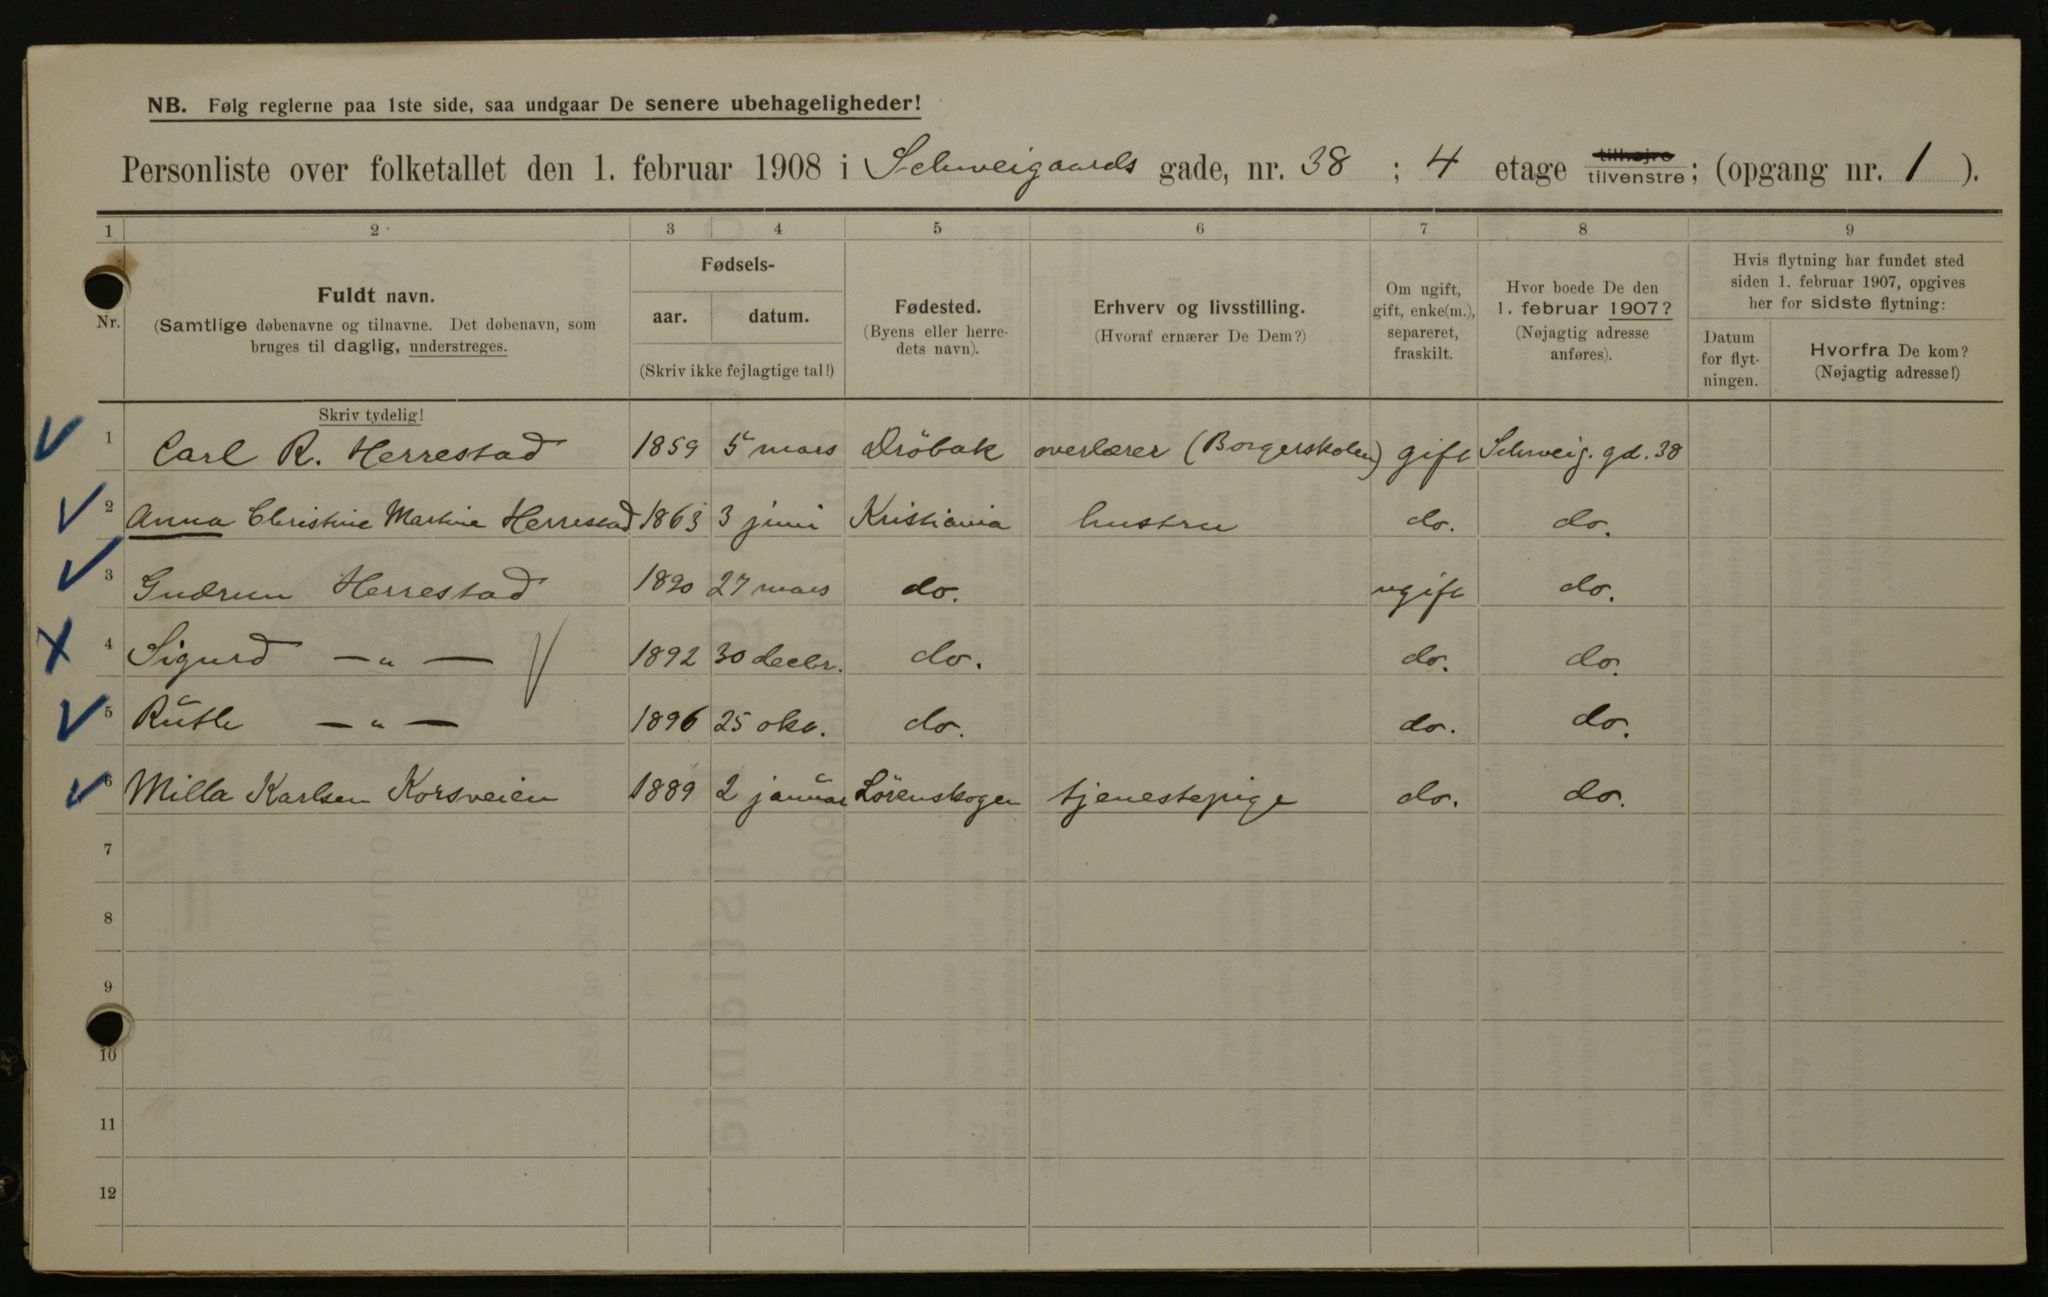 NB. Følg reglerne paa 1ste side, saa undgaar De senere ubehageligheder!
Personliste over folketallet den 1. februar 1908 i Schweigaards gade, nr. 38 ; 4 etage tilhøjre tilvenstre; (opgang nr. 1 ).
1 2 3 4 5 6 7 8 9
Nr.
Fuldt navn.
(Samtlige døbenavne og tilnavne. Det døbenavn, som
bruges til daglig, understreges.
Fødsels-
aar. datum.
(Skriv ikke fejlagtige tal!)
Fødested.
(Byens eller herre-
dets navn).
Erhverv og livsstilling.
(Hvoraf ernærer De Dem?)
Om ugift,
gift, enke(m.),
separeret,
fraskilt.
Hvor boede De den
1. februar 1907?
(Nøjagtig adresse
anføres).
Hvis flytning har fundet sted
siden 1. februar 1907, opgives
her for sidste flytning:
Datum
for flyt-
ningen.
Hvorfra De kom?
(Nøjagtig adresse!)
Skriv tydelig!
1 Carl R. Herrestad 1859 5 mars Dröbak overlærer (Borgerskolen) gift Schweig. gd. 38
2 Anna Christine Martine Herrestad 1863 3 juni Kristiania hustru do. do.
3 Gudrun Herrestad 1890 27 mars do. ugift do.
4 Sigurd — „ — 1892 30 decbr. do. do. do.
5 Ruth — „ — 1896 25 okt. do. do. do.
6 Milla Karlsen Korsveien 1889 2 januar Lörenskogen tjenestepige do. do.
7
8
9
10
11
12